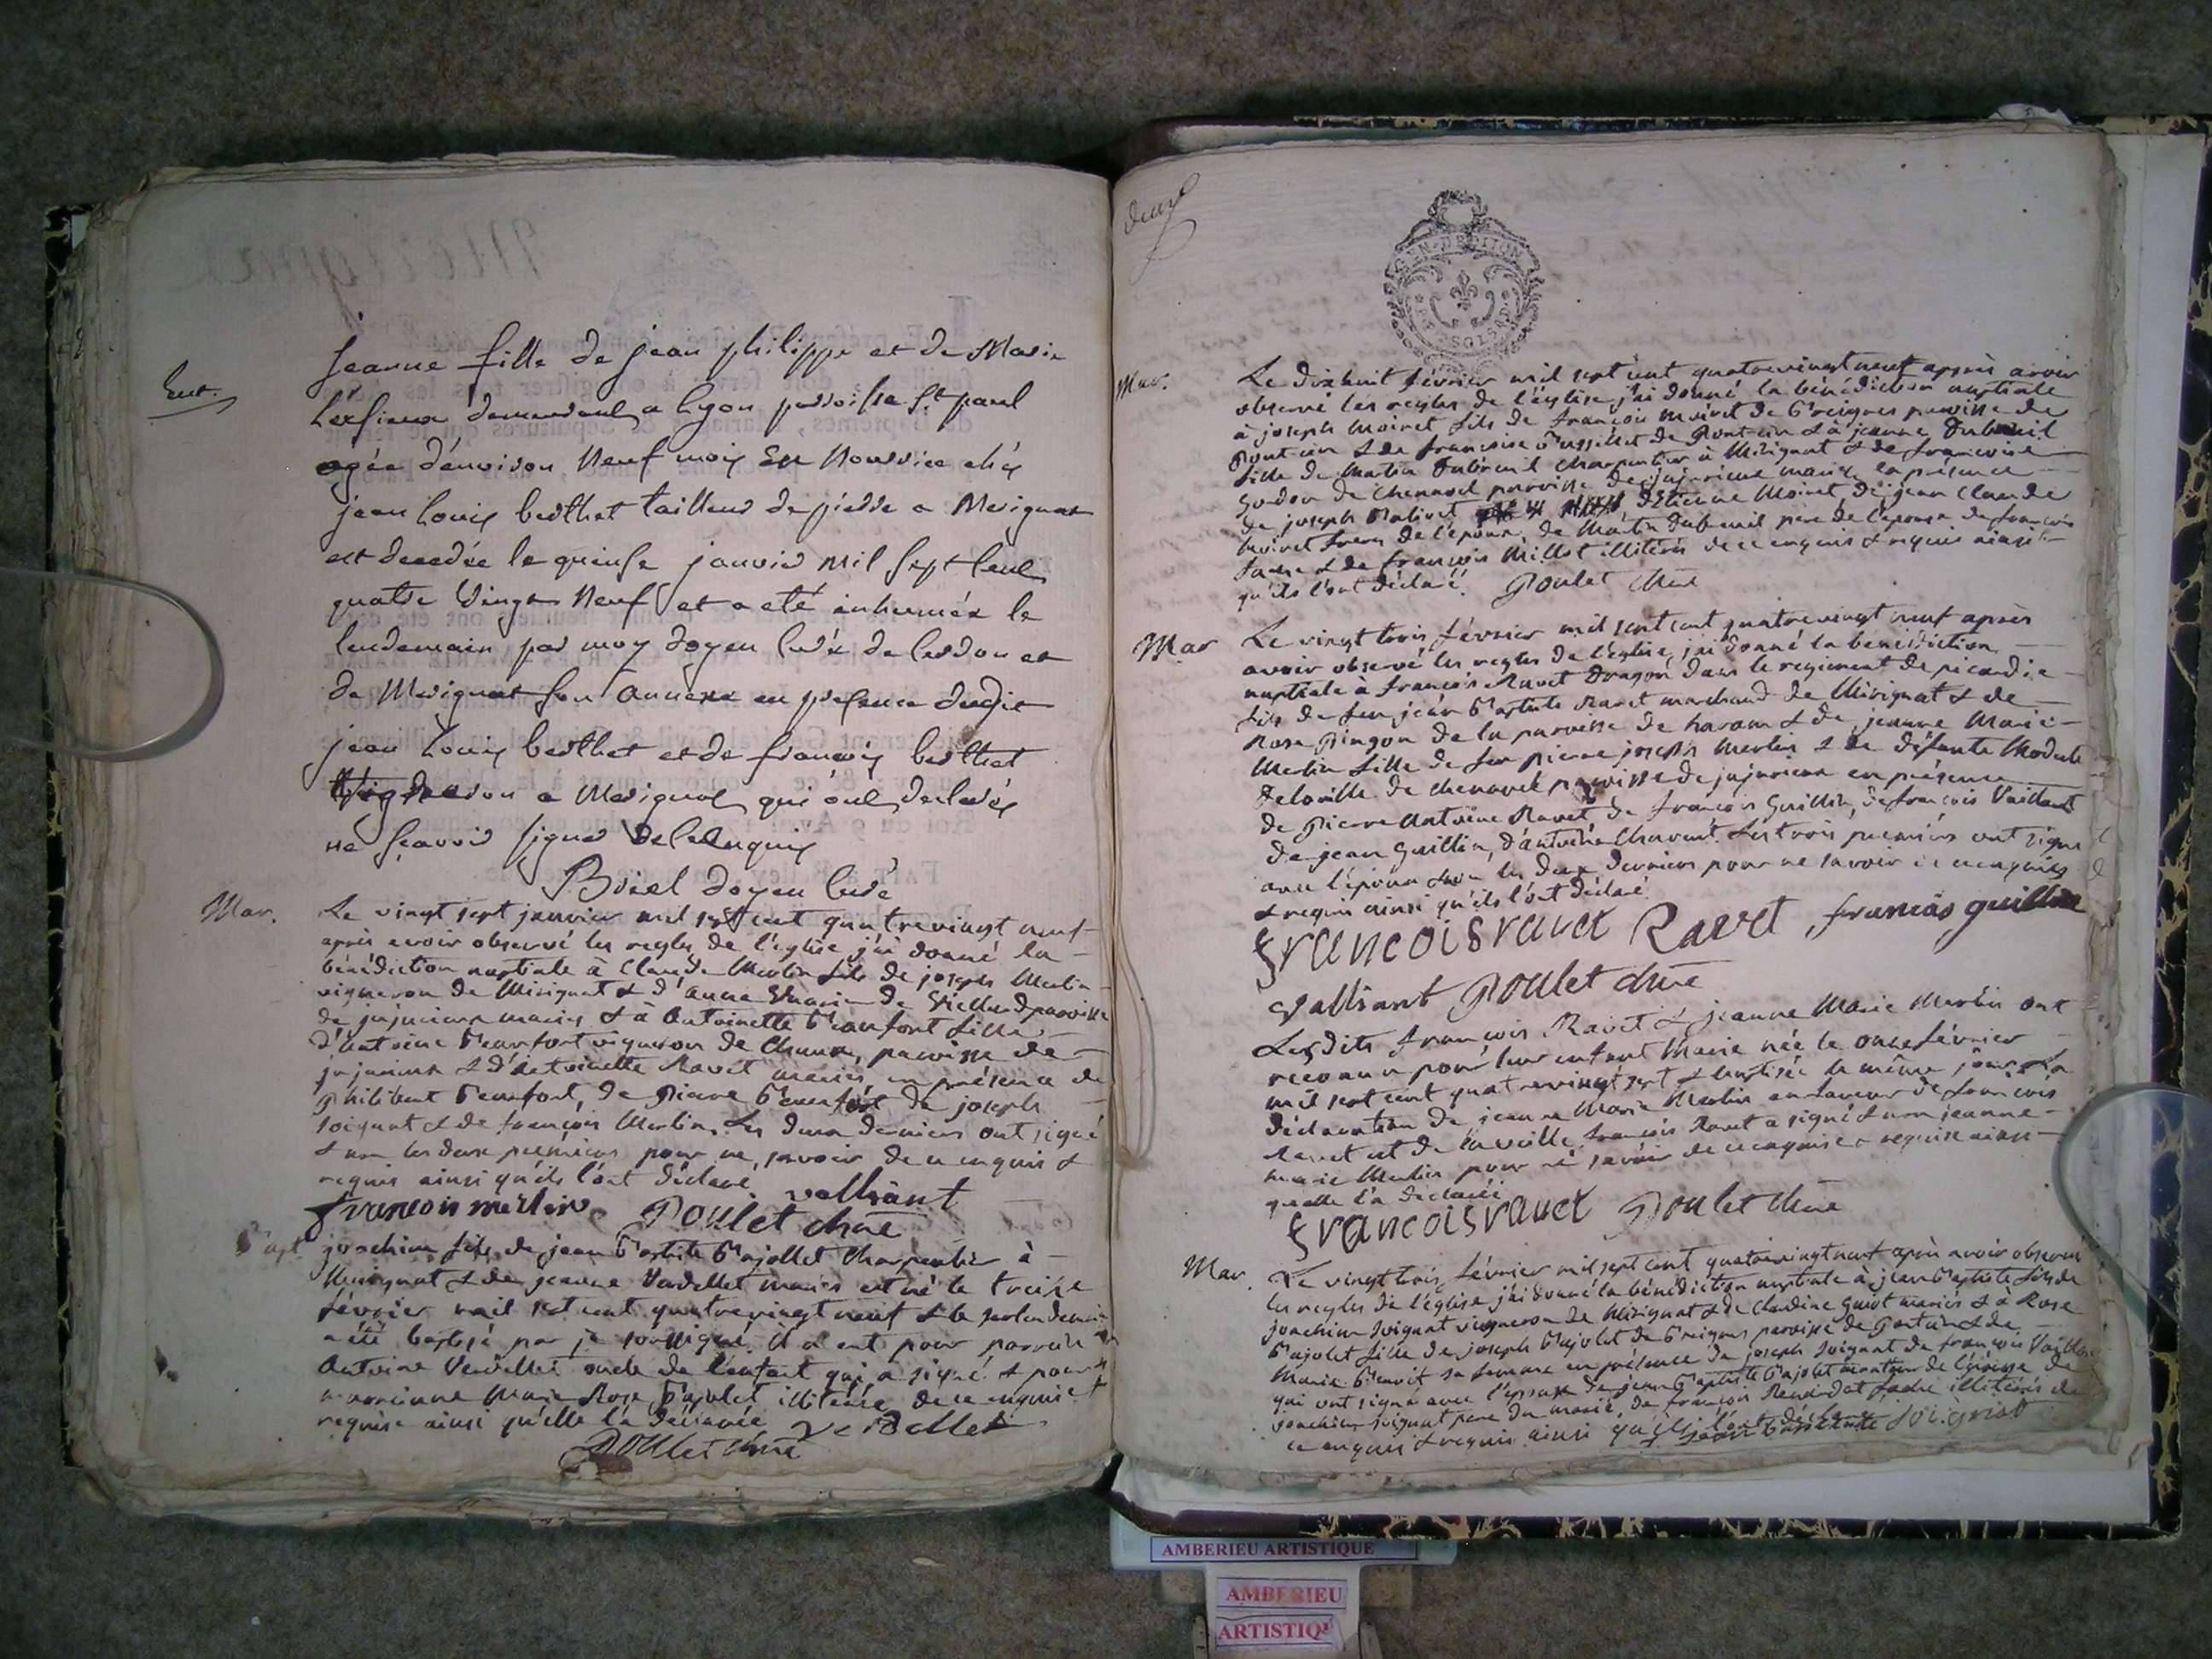 Ent.
Jeanne fille de jean philippe et de Marie
demeurant a Lyon parroisse St paul
agée d'environ Neuf mois En Nourrice chés
jean Louis berthet tailleur de pierre a Merignat
est decedée le quinse janvier Mil Sept Cent
quatre Vingt Neuf et a eté inhumée le
lendemain par moy doyen Curé de Cerdon et
de Merignat son annexe en presence dudit
jean Louis berthet et de francois berthet
Vigneron a Merignat qui ont declarés
ne sçavoir signer de ce enquis
doyen Curé
Mar.
Le vingt sept janvier mil sept cent quatrevingt neuf
après avoir observé les regles de l'église j'ai donné la
bénédiction nuptiale à Claude Merlin fils de joseph Merlin
vigneron de Mérignat & d'anne de paroisse
de jujurieux mariés & à Antoinette Beaufort fille
d'Antoine Beaufort vigneron de Chaux, paroisse de
jujurieux & d'Antoinette Ravet mariés, en présence de
Philibert Beaufort, de Pierre Beaufort de joseph
Soignat & de françois Merlin, Les deux derniers ont signé
& non les deux premiers pour ne savoir de ce enquis &
requis ainsi qu'ils l'ont déclaré. vallhant
francois merlin Poulet chne
Bapt
joachim fils de jean Baptiste Bajollet Charpentier à
Merignat & de jeanne Verdellet mariés est né le treize
février mil sept cent quatrevingt neuf & le surlendemain
a été baptisé par je soussigné. Il a eut pour parrain
Antoine Verdellet oncle de l'enfant qui a signé & pour
marrienne Marie Rose Bajolet illitérée de ce enquise &
requise ainsi qu'elle l'a déclarée Verdellet
Poulet chne
deux
GEN. DE DIJON
Mar.
Le dixhuit février mil sept cent quatrevingt neuf après avoir
observé les regles de l'église j'ai donné la bénédiction nuptiale
à joseph Moiret fils de françois moiret de Breignes paroisse de
Poncin & de françoise de Poncin & à jeanne Dubreuil
fille de Martin Dubreuil Charpentier à Mérignat & de francoise
Gordon de Chenavel paroisse de jujurieux mariés en présence
de joseph Malivet d'Etienne Moiret, de jean Claude
Moiret freres de l'époux, de Martin Dubreuil pere de l'épouse de francois
& de françois Millet illitérés de ce enquis & requis ainsi
qu'ils l'ont déclaré. Poulet chne
Mar
Le vingt trois février mil sept cent quatrevingt neuf après
avoir observé les regles de l'église, j'ai donné la bénédiction
nuptiale à francois Ravet Dragon dans le regiment de picardie
fils de feu jean Baptiste Ravet marchand de Mérignat & de
Rose Pingon de la paroisse de & de jeanne Marie
Merlin fille de feu pierre joseph Merlin & de défunte Modeste
Deloville de chenavel paroisse de jujurieux en présence
de Pierre Antoine Ravet de francois Guillin, de francois Vaillant
de jean Guillin, d'antoine Les trois premiers ont signé
avec l'époux non les deux derniers pour ne savoir de ce enquis
& requis ainsi qu'ils l'ont déclaré
francois ravet Ravet francois guillin
vallhant Poulet chne
Lesdits francois Ravet & jeanne Marie Merlin ont
reconnu pour leur enfant Marie née le onze février
mil sept cent quatrevingt sept & baptisée le même jour La
déclaration de jeanne Marie Merlin en faveur de francois
Ravet est de la veille, francois Ravet a signé & non jeanne
marie Merlin pour ne savoir de ce enquise & requise ainsi
qu'elle l'a déclarée
francois ravet Poulet chne
Mar.
Le vingt trois février mil sept cent quatrevingt neuf après avoir observé
les regles de l'église j'ai donné la bénédiction nuptiale à jean Baptiste fils de
joachim Soignat vigneron de Mérignat & de Claudine Guiot mariés & à Rose
Bajolet fille de joseph Bajolet de Breignes paroisse de Poncin & de
Marie Benoit sa femme en présence de joseph Soignat de francois Vaillant
qui ont signé avec l'époux de jean Baptiste Bajolet de l'épouse de
joachim Soignat pere du marié, de francois illitérés de
ce enquis & requis ainsi qu'ils l'ont déclaré jean baptiste soignat
AMBERIEU ARTISTIQUE
AMBERIEU
ARTISTIQU